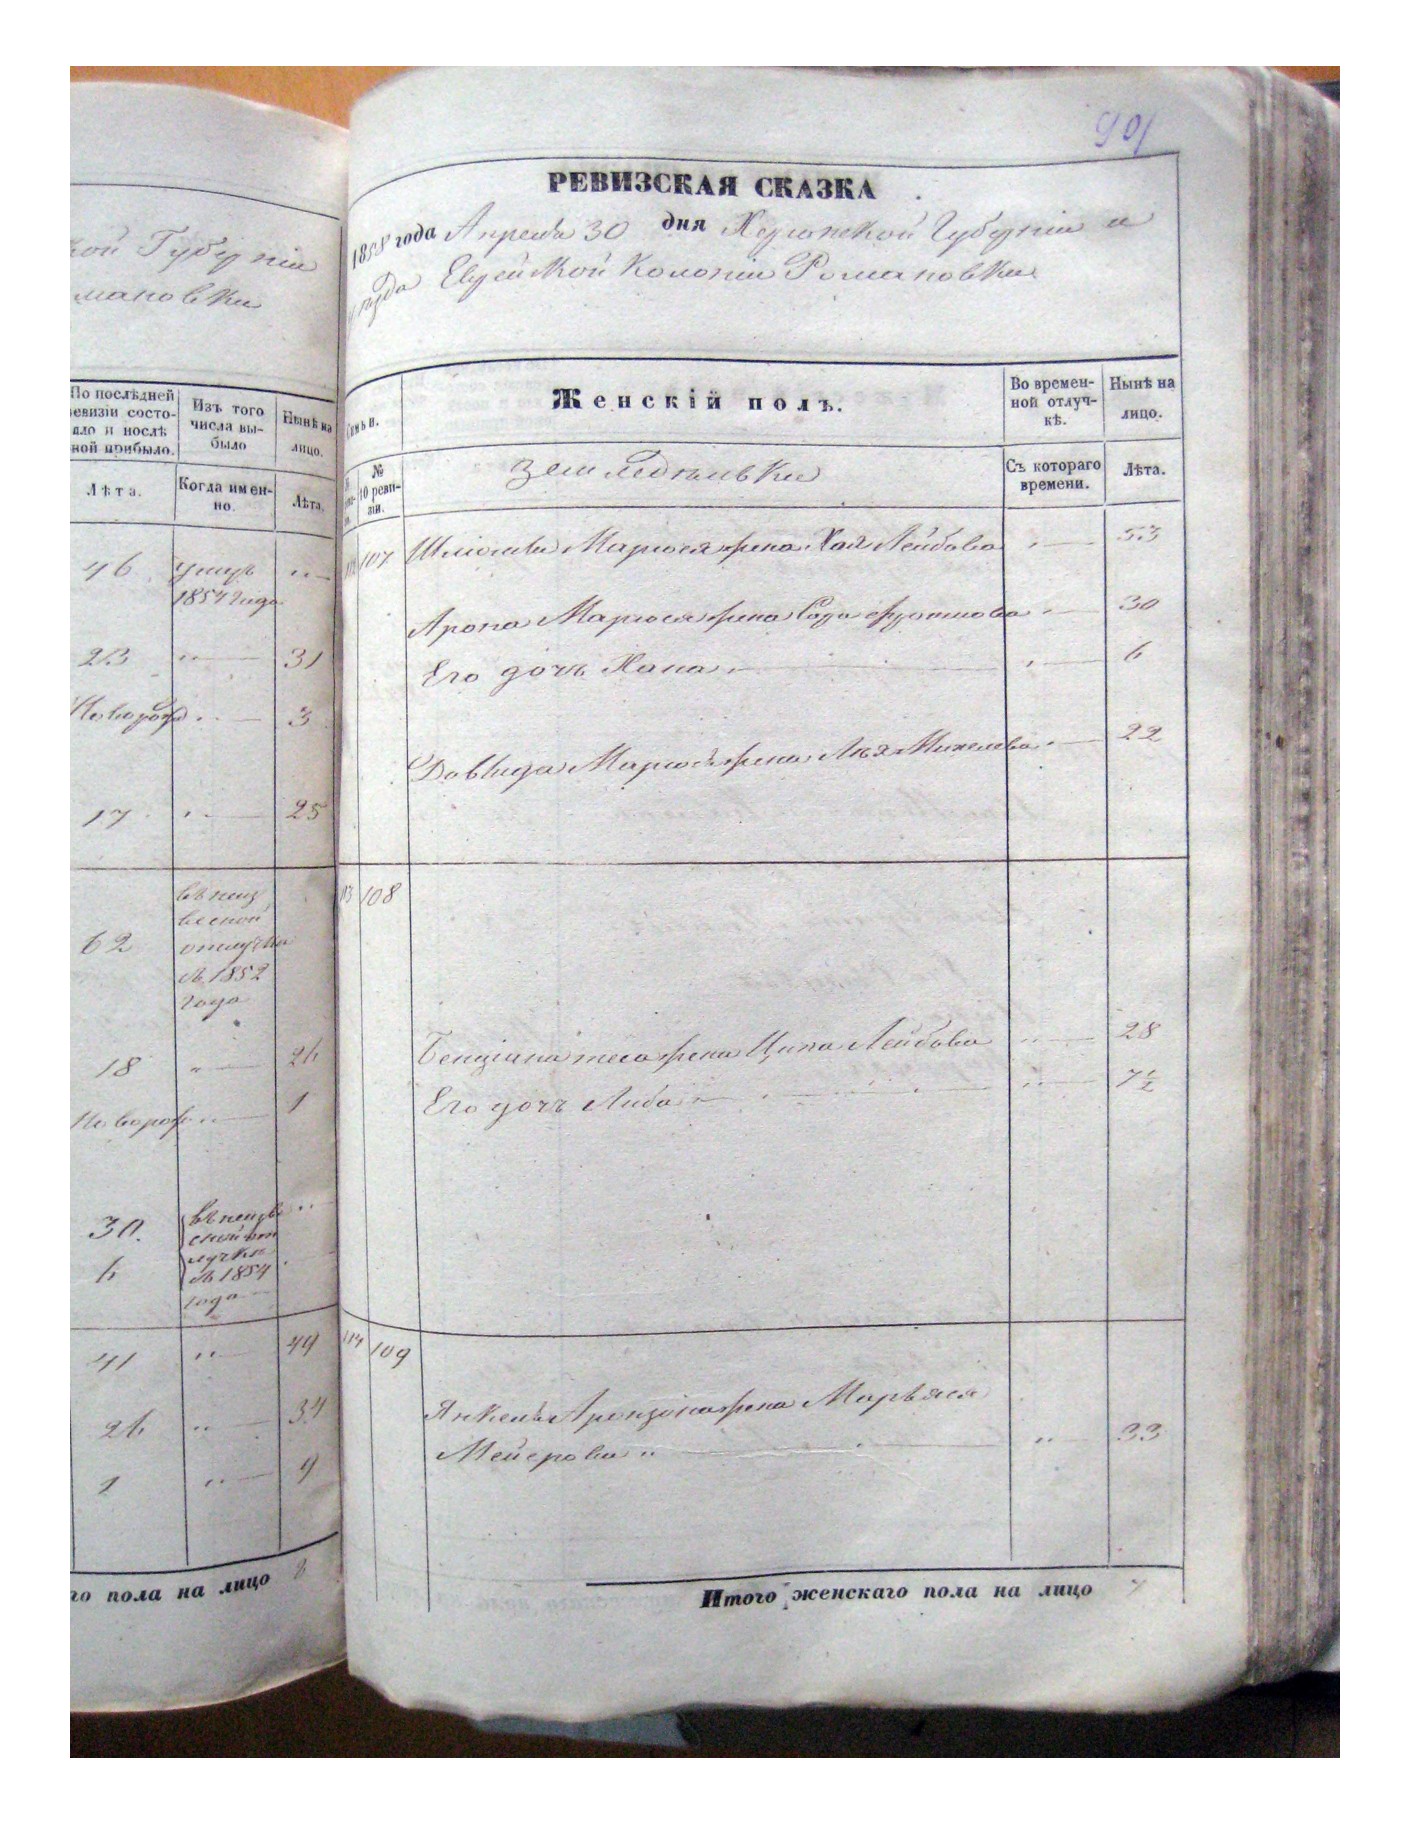 901
кой Губерніи
мановки
По послѣдней ревизіи состояло и послѣ ной прибыло.
Изъ того числа выбыло
Нынѣ на лицо.
Лѣта.
Когда именно.
Лѣта.
46 умеръ 1854 года
23 31
Новорож 3
17 25
62 въ неизвесной отлучки съ 1852 года
18 26
Новорож 1
30. въ неизвесной отлучки съ 1854 года
6
41 49
26 34
1 9
го пола на лицо 8
РЕВИЗСКАЯ СКАЗКА
1858 года Апреля 30 дня Херсонской Губерніи и
уезда Еврейской Колоніи Романовки
Семьи.
Женскій полъ.
Во временной отлучкѣ.
Нынѣ на лицо.
№ 10 ревизіи.
земледельвки
Съ котораго времени.
Лѣта.
112 107 Шліомы Марюся жена Хая Лейбова 53
Арона Марюся жена Сода 30
Его дочь Хана 6
Довида Марюся жена Лея Михелева 22
113 108
жена Ципа Лейбова 28
Его дочь Либа 7½
114 109
Янкель Аронзона жена Марьяся
Мейерова 33
Итого женскаго пола на лицо 7